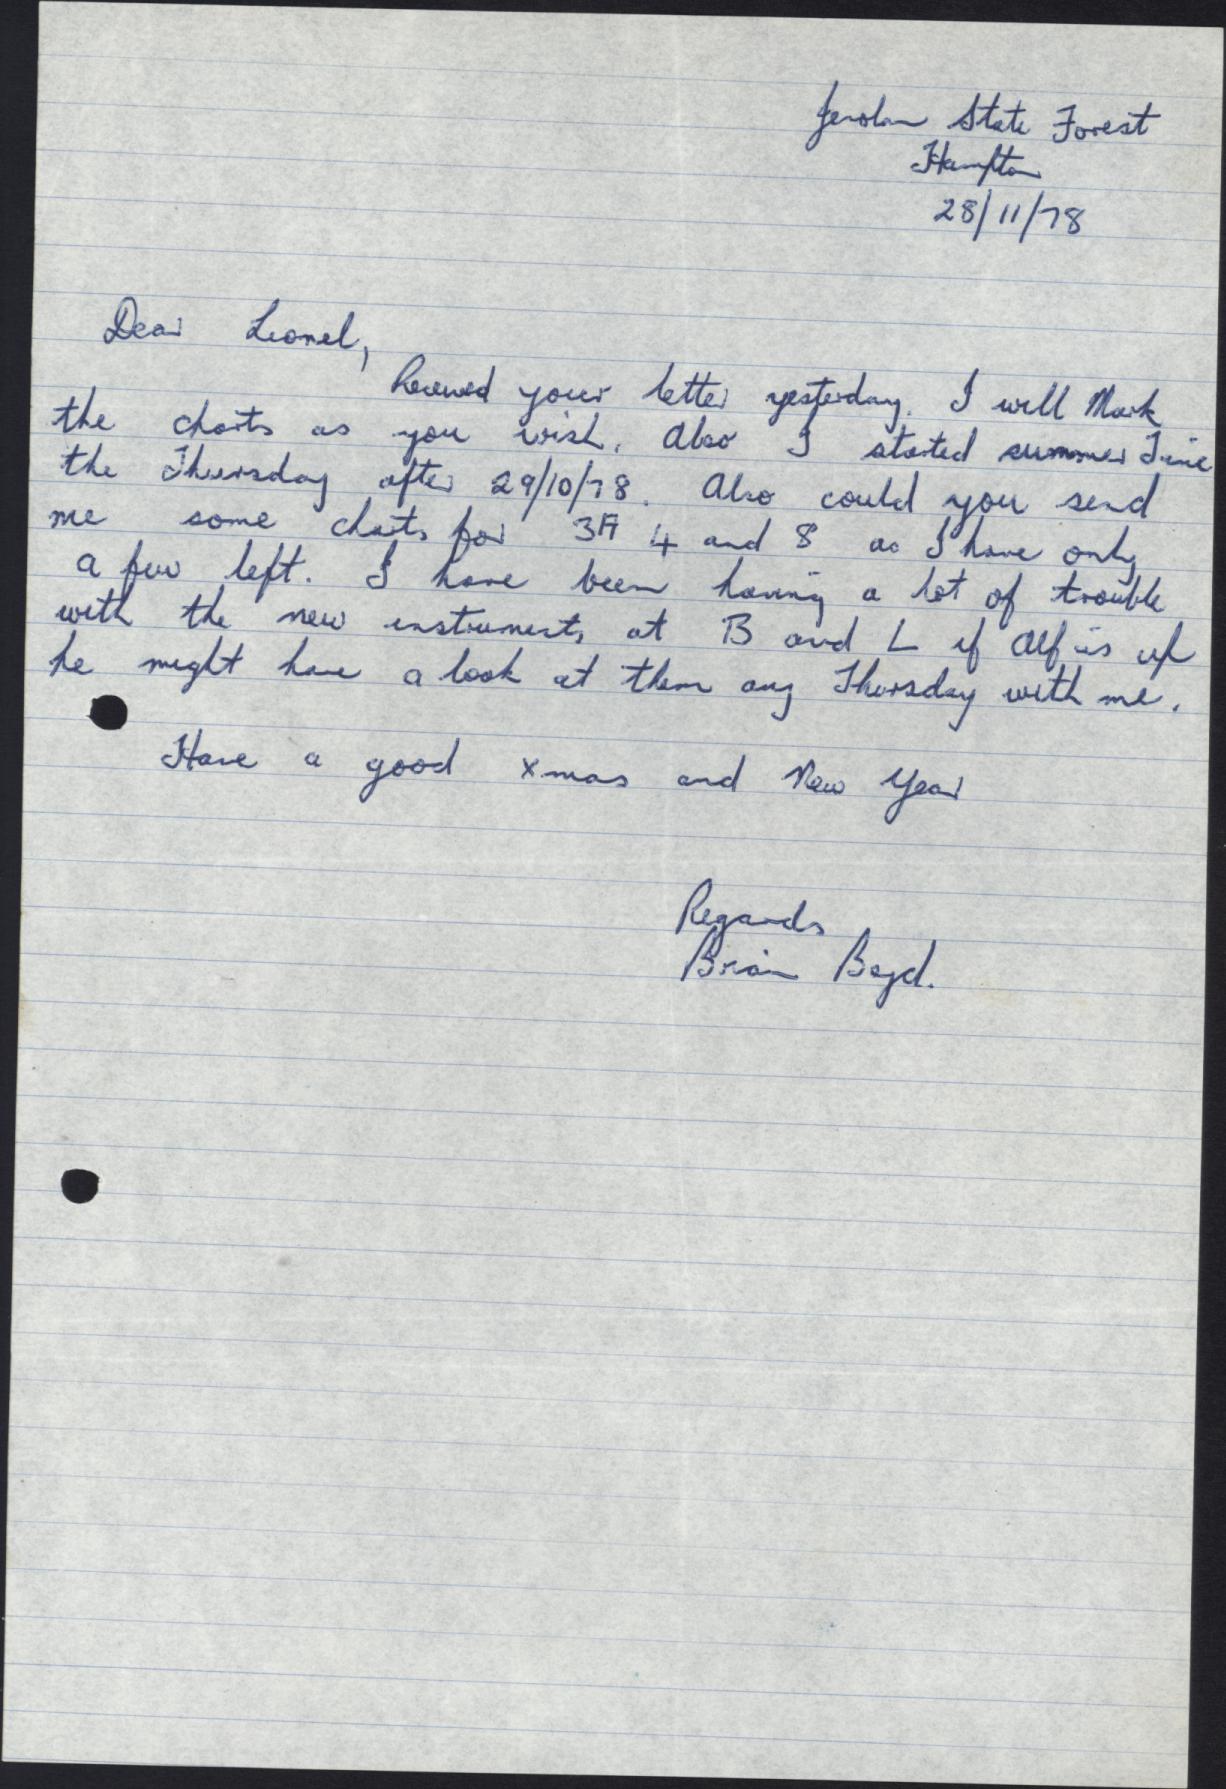 Jenolan State Forest
Hampton
28/11/78
Dear Lionel,
Received your letter yesterday. I will Mark
the charts as you wish. Also I started summer Time
the Thursday after 29/10/78. Also could you send
me some charts for 3A 4 and 8 as I have only
a few left. I have been having a lot of trouble
with the new instruments at B and L if Alf is up
he might have a look at them any Thursday with me.
Have a good xmas and New Year
Regards
Brian Boyd.